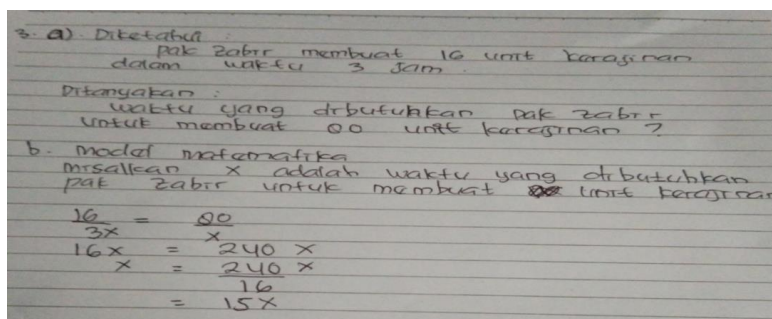 3. a) Diketahui :
pak zabir membuat 16 unit kerajinan
dalam waktu 3 jam.
Ditanyakan :
waktu yang dibutuhkan pak zabir
untuk membuat 80 unit kerajinan ?
b. model matematika
misalkan x adalah waktu yang dibutuhkan
pak zabir untuk membuat unit kerajinan
16/3x = 80/x
16x = 240 x
x = 240/16 x
= 15x